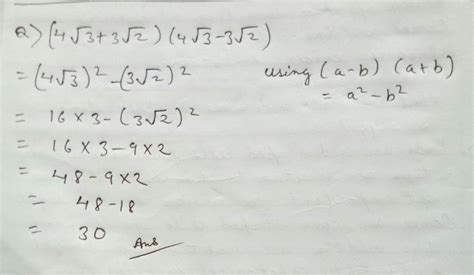 Q> (4√3+3√2) (4√3-3√2)
= (4√3)² -(3√2)² using (a-b) (a+b)
= a²-b²
= 16×3-(3√2)²
= 16×3-9×2
= 48-9×2
= 48-18
= 30 Ans